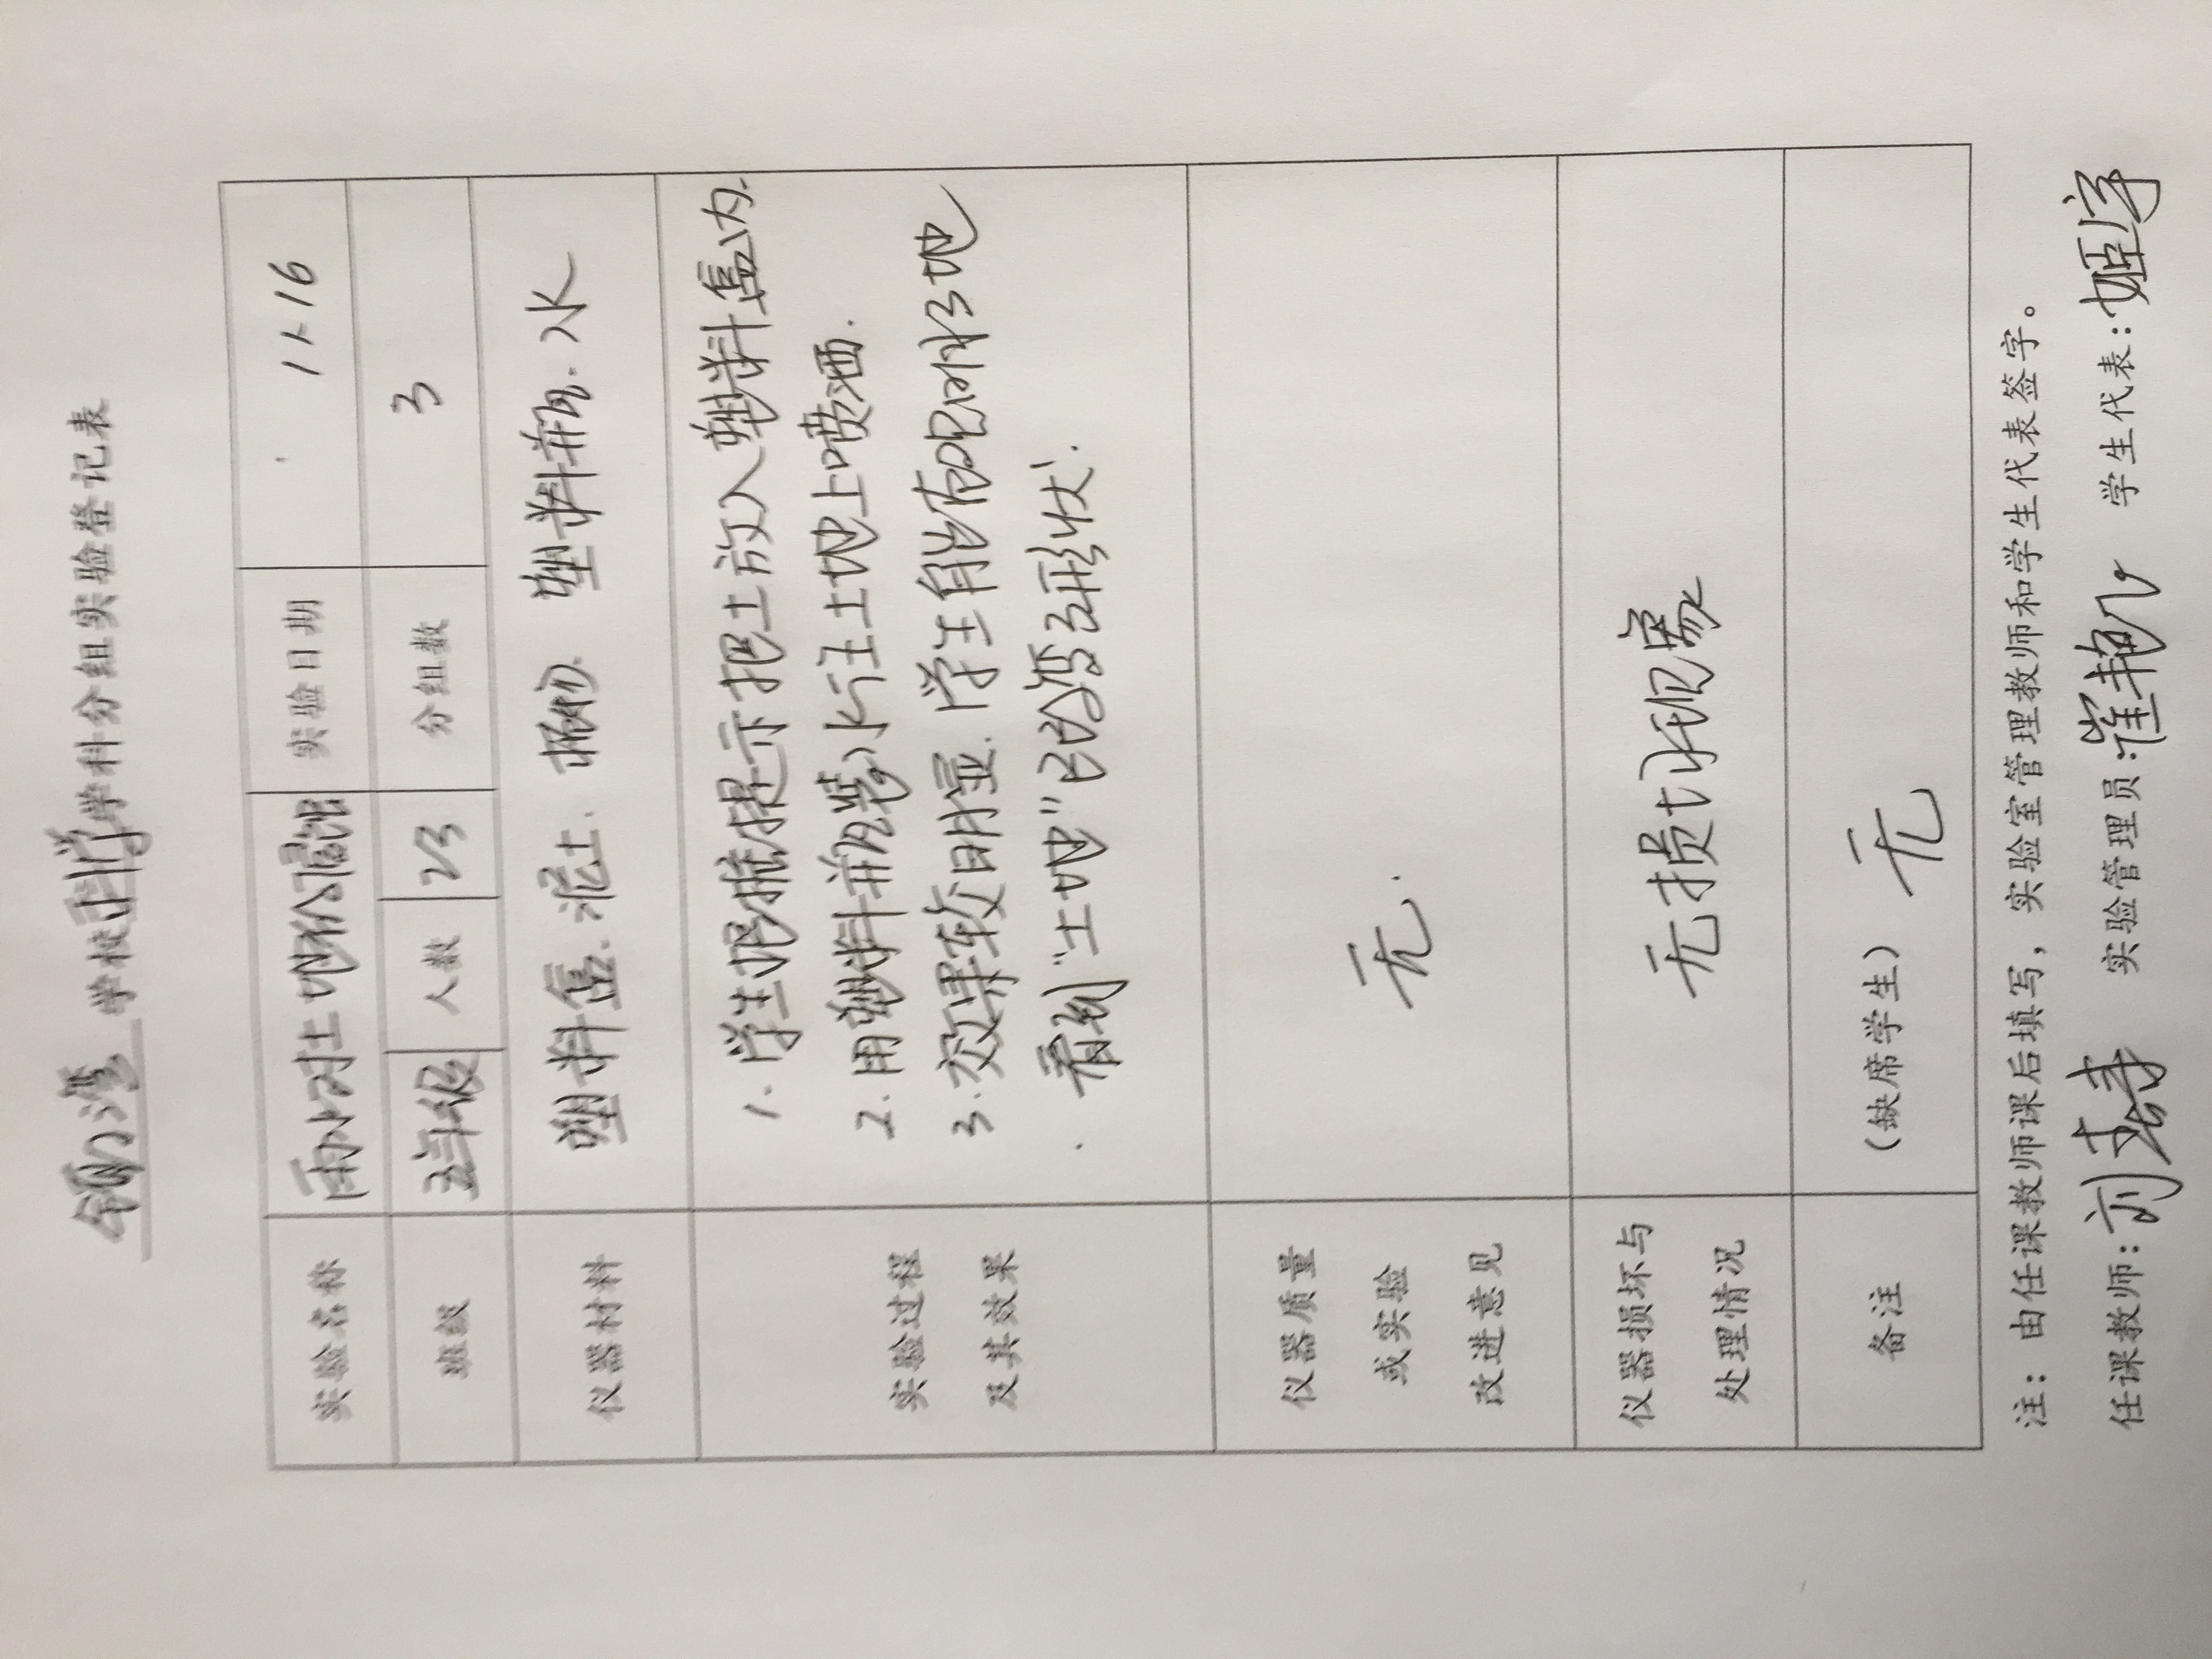 学校科学学科分组实验登记表
实验名称 雨水对土地的侵蚀 实验日期 11.16
班级 五年级 人数 23 分组数 3
仪器材料 塑料盒.泥土. 塑料瓶.水
实验过程
及其效果
1.学生根据提示把土放入塑料盒内.
2.用塑料瓶装水往土地上喷洒.
3.效果较明显.学生能够很明显地
看到“土地”改变了形状.
仪器质量
或实验
改进意见
无.
仪器损坏与
处理情况
无损坏现象
备注 (缺席学生) 无
注：由任课教师课后填写，实验室管理教师和学生代表签字。
任课教师:刘 实验管理员:崔艳 学生代表:姬宇